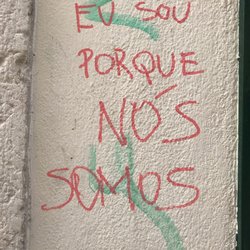 EU SOU
PORQUE
NÓS
SOMOS